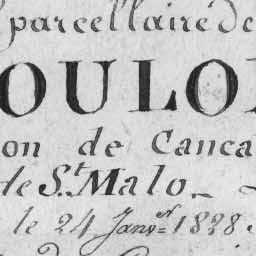 parcellaire de
OULO
on de Canca
de S.t Malo
le 24 Janv.er 1828